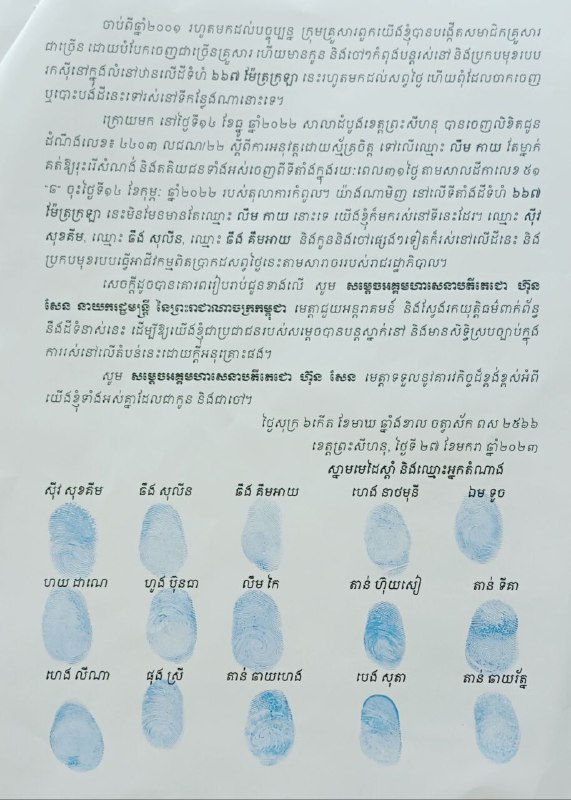 ចាប់ពីឆ្នាំ២០០១ រហូតមកដល់បច្ចុប្បន្ន ក្រុមគ្រួសារពួកយើងខ្ញុំបានបង្កើតសមាជិកគ្រួសារ
ជាច្រើន ដោយបំបែកចេញជាច្រើនគ្រួសារ ហើយមានកូន និងចៅៗកំពុងបន្តរស់នៅ និងប្រកបមុខរបប
រកស៊ីនៅក្នុងលំនៅឋានលើដីទំហំ ៦៦៧ ម៉ែត្រក្រឡា នេះរហូតមកដល់សព្វថ្ងៃ ហើយពុំដែលចាកចេញ
ឬបោះបង់ដីនេះទៅរស់នៅទីកន្លែងណានោះទេ។
ក្រោយមក នៅថ្ងៃទី១៤ ខែធ្នូ ឆ្នាំ២០២២ សាលាដំបូងខេត្តព្រះសីហនុ បានចេញលិខិតជូន
ដំណឹងលេខ៖ ៤៤០៣ លជណ/២២ ស្ដីពីការអនុវត្តដោយស្ម័គ្រចិត្ត ទៅលើឈ្មោះ លឹម កាយ តែម្នាក់
គត់ឱ្យរុះរើសំណង់ និងតតិយជនទាំងអស់ចេញពីទីតាំងក្នុងរយៈពេល៣១ថ្ងៃ តាមសាលដីកាលេខ ៥១
"ធ" ចុះថ្ងៃទី១៤ ខែកុម្ភៈ ឆ្នាំ២០២២ របស់តុលាការកំពូល។ យ៉ាងណាមិញ នៅលើទីតាំងដីទំហំ ៦៦៧
ម៉ែត្រក្រឡា នេះមិនមែនមានតែឈ្មោះ លឹម កាយ នោះទេ យើងខ្ញុំក៏មករស់នៅទីនេះដែរ។ ឈ្មោះ ស៊ីវ
សុខគីម, ឈ្មោះ ធឹង សុលីន, ឈ្មោះ ធឹង គឹមអាយ និងកូននិងចៅផ្សេងៗទៀតក៏រស់នៅលើដីនេះ និង
ប្រកបមុខរបបធ្វើអាជីវកម្មពិតប្រាកដសព្វថ្ងៃនេះតាមសារាចររបស់រាជរដ្ឋាភិបាល។
សេចក្ដីដូចបានគោរពរៀបរាប់ជូនខាងលើ សូម សម្ដេចអគ្គមហាសេនាបតីតេជោ ហ៊ុន
សែន នាយករដ្ឋមន្ត្រី នៃព្រះរាជាណាចក្រកម្ពុជា មេត្តាជួយអន្តរាគមន៍ និងស្វែងរកយុត្តិធម៌ពាក់ព័ន្ធ
នឹងដីទំនាស់នេះ ដើម្បីឱ្យយើងខ្ញុំជាប្រជាជនរបស់សម្ដេចបានបន្តស្នាក់នៅ និងមានសិទ្ធិស្របច្បាប់ក្នុង
ការរស់នៅលើតំបន់នេះដោយក្ដីអនុគ្រោះផង។
សូម សម្ដេចអគ្គមហាសេនាបតីតេជោ ហ៊ុន សែន មេត្តាទទួលនូវគារវកិច្ចដ៏ខ្ពង់ខ្ពស់អំពី
យើងខ្ញុំទាំងអស់គ្នាដែលជាកូន និងជាចៅ។
ថ្ងៃសុក្រ ៦កើត ខែមាឃ ឆ្នាំខាល ចត្វាស័ក ពស ២៥៦៦
ខេត្តព្រះសីហនុ, ថ្ងៃទី ២៧ ខែមករា ឆ្នាំ២០២៣
ស្នាមមេដៃស្ដាំ និងឈ្មោះអ្នកតំណាង
ស៊ីវ សុខគីម ធឹង សុលីន ធឹង គឹមអាយ ហេង នាថមុនី ឯម ទូច
ហយ ដាណេ ហួង ប៊ុនធា លឹម កែ តាន់ ហ៊ិយសៀ តាន់ ទីគា
ហេង លីណា ផុង ស្រី តាន់ ឆាយហេង បេង សុតា តាន់ ឆាយរ័ត្ន